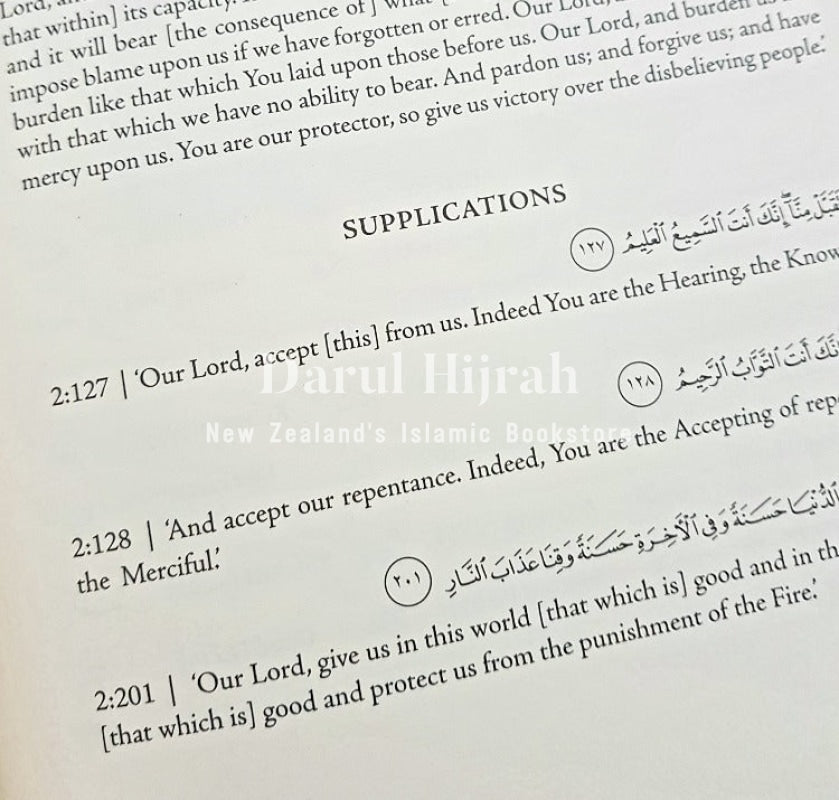 Lord,
that within] its capacity.
and it will bear [the consequence of] what
impose blame upon us if we have forgotten or erred. Our Lord,
burden like that which You laid upon those before us. Our Lord, and burden
with that which we have no ability to bear. And pardon us; and forgive us; and have
mercy upon us. You are our protector, so give us victory over the disbelieving people.’
SUPPLICATIONS
مِنَّآ ۖ إِنَّكَ أَنتَ ٱلسَّمِيعُ ٱلْعَلِيمُ ١٢٧
2:127 | ‘Our Lord, accept [this] from us. Indeed You are the Hearing, the
Darul Hijrah
أَنتَ ٱلتَّوَّابُ ٱلرَّحِيمُ ١٢٨
New Zealand's Islamic Bookstore
2:128 | ‘And accept our repentance. Indeed, You are the Accepting of
the Merciful.’
ٱلدُّنْيَا حَسَنَةً وَفِى ٱلْءَاخِرَةِ حَسَنَةً وَقِنَا عَذَابَ ٱلنَّارِ ٢٠١
2:201 | ‘Our Lord, give us in this world [that which is] good and in
[that which is] good and protect us from the punishment of the Fire.’